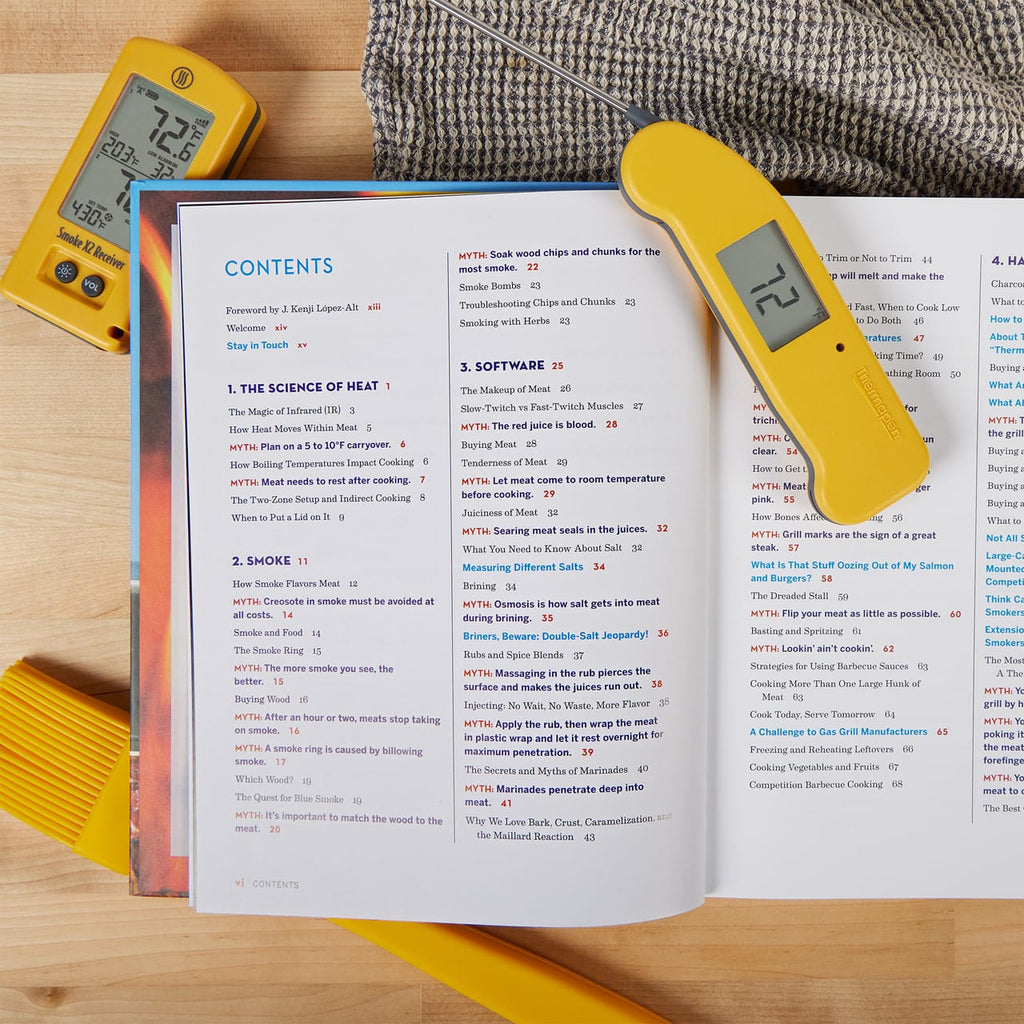 72.6°F
LOW ALARM
203°F
SET TEMP
430°F
Smoke X2 Receiver
VOL
72°F
Thermapen
CONTENTS
Foreword by J. Kenji López-Alt xiii
Welcome xiv
Stay in Touch xv
1. THE SCIENCE OF HEAT 1
The Magic of Infrared (IR) 3
How Heat Moves Within Meat 5
MYTH: Plan on a 5 to 10°F carryover. 6
How Boiling Temperatures Impact Cooking 6
MYTH: Meat needs to rest after cooking. 7
The Two-Zone Setup and Indirect Cooking 8
When to Put a Lid on It 9
2. SMOKE 11
How Smoke Flavors Meat 12
MYTH: Creosote in smoke must be avoided at
all costs. 14
Smoke and Food 14
The Smoke Ring 15
MYTH: The more smoke you see, the
better. 15
Buying Wood 16
MYTH: After an hour or two, meats stop taking
on smoke. 16
MYTH: A smoke ring is caused by billowing
smoke. 17
Which Wood? 19
The Quest for Blue Smoke 19
MYTH: It's important to match the wood to the
meat. 20
MYTH: Soak wood chips and chunks for the
most smoke. 22
Smoke Bombs 23
Troubleshooting Chips and Chunks 23
Smoking with Herbs 23
3. SOFTWARE 25
The Makeup of Meat 26
Slow-Twitch vs Fast-Twitch Muscles 27
MYTH: The red juice is blood. 28
Buying Meat 28
Tenderness of Meat 29
MYTH: Let meat come to room temperature
before cooking. 29
Juiciness of Meat 32
MYTH: Searing meat seals in the juices. 32
What You Need to Know About Salt 32
Measuring Different Salts 34
Brining 34
MYTH: Osmosis is how salt gets into meat
during brining. 35
Briners, Beware: Double-Salt Jeopardy! 36
Rubs and Spice Blends 37
MYTH: Massaging in the rub pierces the
surface and makes the juices run out. 38
Injecting: No Wait, No Waste, More Flavor 38
MYTH: Apply the rub, then wrap the meat
in plastic wrap and let it rest overnight for
maximum penetration. 39
The Secrets and Myths of Marinades 40
MYTH: Marinades penetrate deep into
meat. 41
Why We Love Bark, Crust, Caramelization, and
the Maillard Reaction 43
vi CONTENTS
Trim or Not to Trim 44
will melt and make the
Fast, When to Cook Low
to Do Both 46
47
Time? 49
Room 50
for
clear. 54
How to Get
MYTH: Meat
pink. 55
How Bones 56
MYTH: Grill marks are the sign of a great
steak. 57
What Is That Stuff Oozing Out of My Salmon
and Burgers? 58
The Dreaded Stall 59
MYTH: Flip your meat as little as possible. 60
Basting and Spritzing 61
MYTH: Lookin' ain't cookin'. 62
Strategies for Using Barbecue Sauces 63
Cooking More Than One Large Hunk of
Meat 63
Cook Today, Serve Tomorrow 64
A Challenge to Gas Grill Manufacturers 65
Freezing and Reheating Leftovers 66
Cooking Vegetables and Fruits 67
Competition Barbecue Cooking 68
4.
What to
How to
About
Buying
What
What
MYTH:
the grill
Buying
Buying
Buying
What to
Not All
Mounted
Think
Smokers
Smokers
The Most
A
MYTH:
grill by
MYTH:
poking
the meat
MYTH:
meat to
The Best